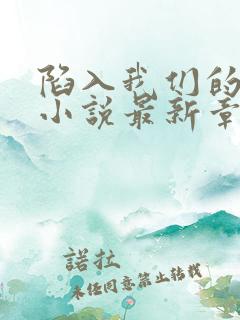 陷入我们的
小说最新章
諾拉
未经同意禁止转载